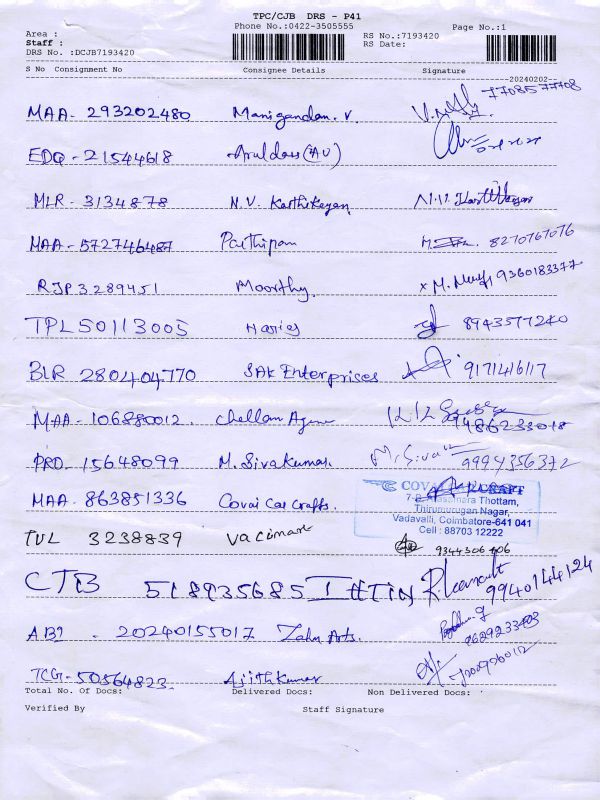 TPC/CJB DRS - P41
Phone No.:0422-3505555 Page No.:1
Area : RS No.:7193420
Staff : RS Date:
DRS No. :DCJB7193420
S No Consignment No Consignee Details Signature
20240202
MAA- 293202480 Manigandan.V. 7708577708
EDQ - 21544618 Aruldass (AV)
MLR - 3134878 N.V. Karthikeyan
MAA- 572746487 Parthipan 8270767076
RJP 3289451 Moorthy. x M. 9360183377
TPL50113005 Haries 8943577240
BLR 280404770 SAK Enterprises 9171416117
MAA- 106880012. Chellam 9486233018
PRD- 15648099 M. Sivakumar. M. Siva 9994356372
MAA- 863851336 Covai Car Crafts.
COVAI CRAFT
Thottam,
Thirumurugan Nagar,
Vadavalli, Coimbatore-641 041
Cell : 88703 12222
TUL 3238839 Vacimart 9344306406
CTB 518935685 9940144124
AB1 - 20240155017 Zahn Arts. 9629233403
TCG- 50564823. Ajithkumar
Total No. Of Docs: Delivered Docs: Non Delivered Docs:
Verified By Staff Signature